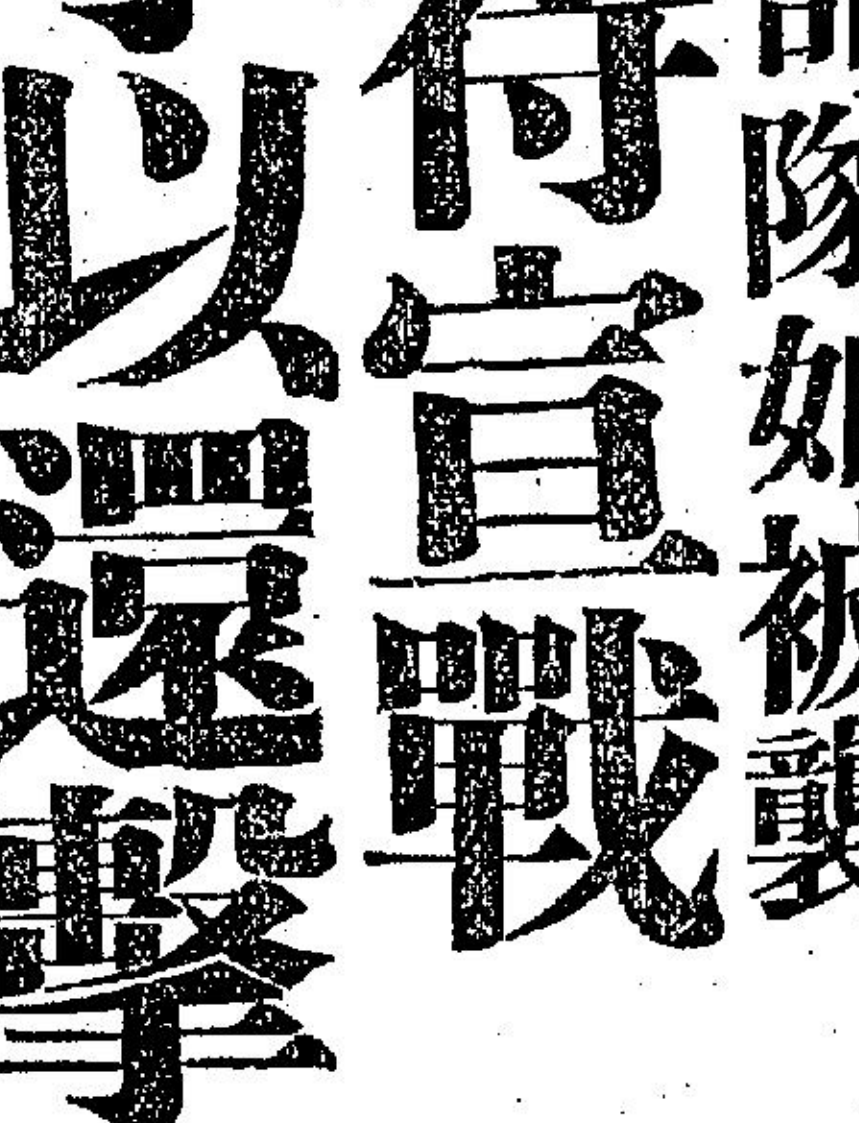 隊如被襲
待宣戰
以還擊